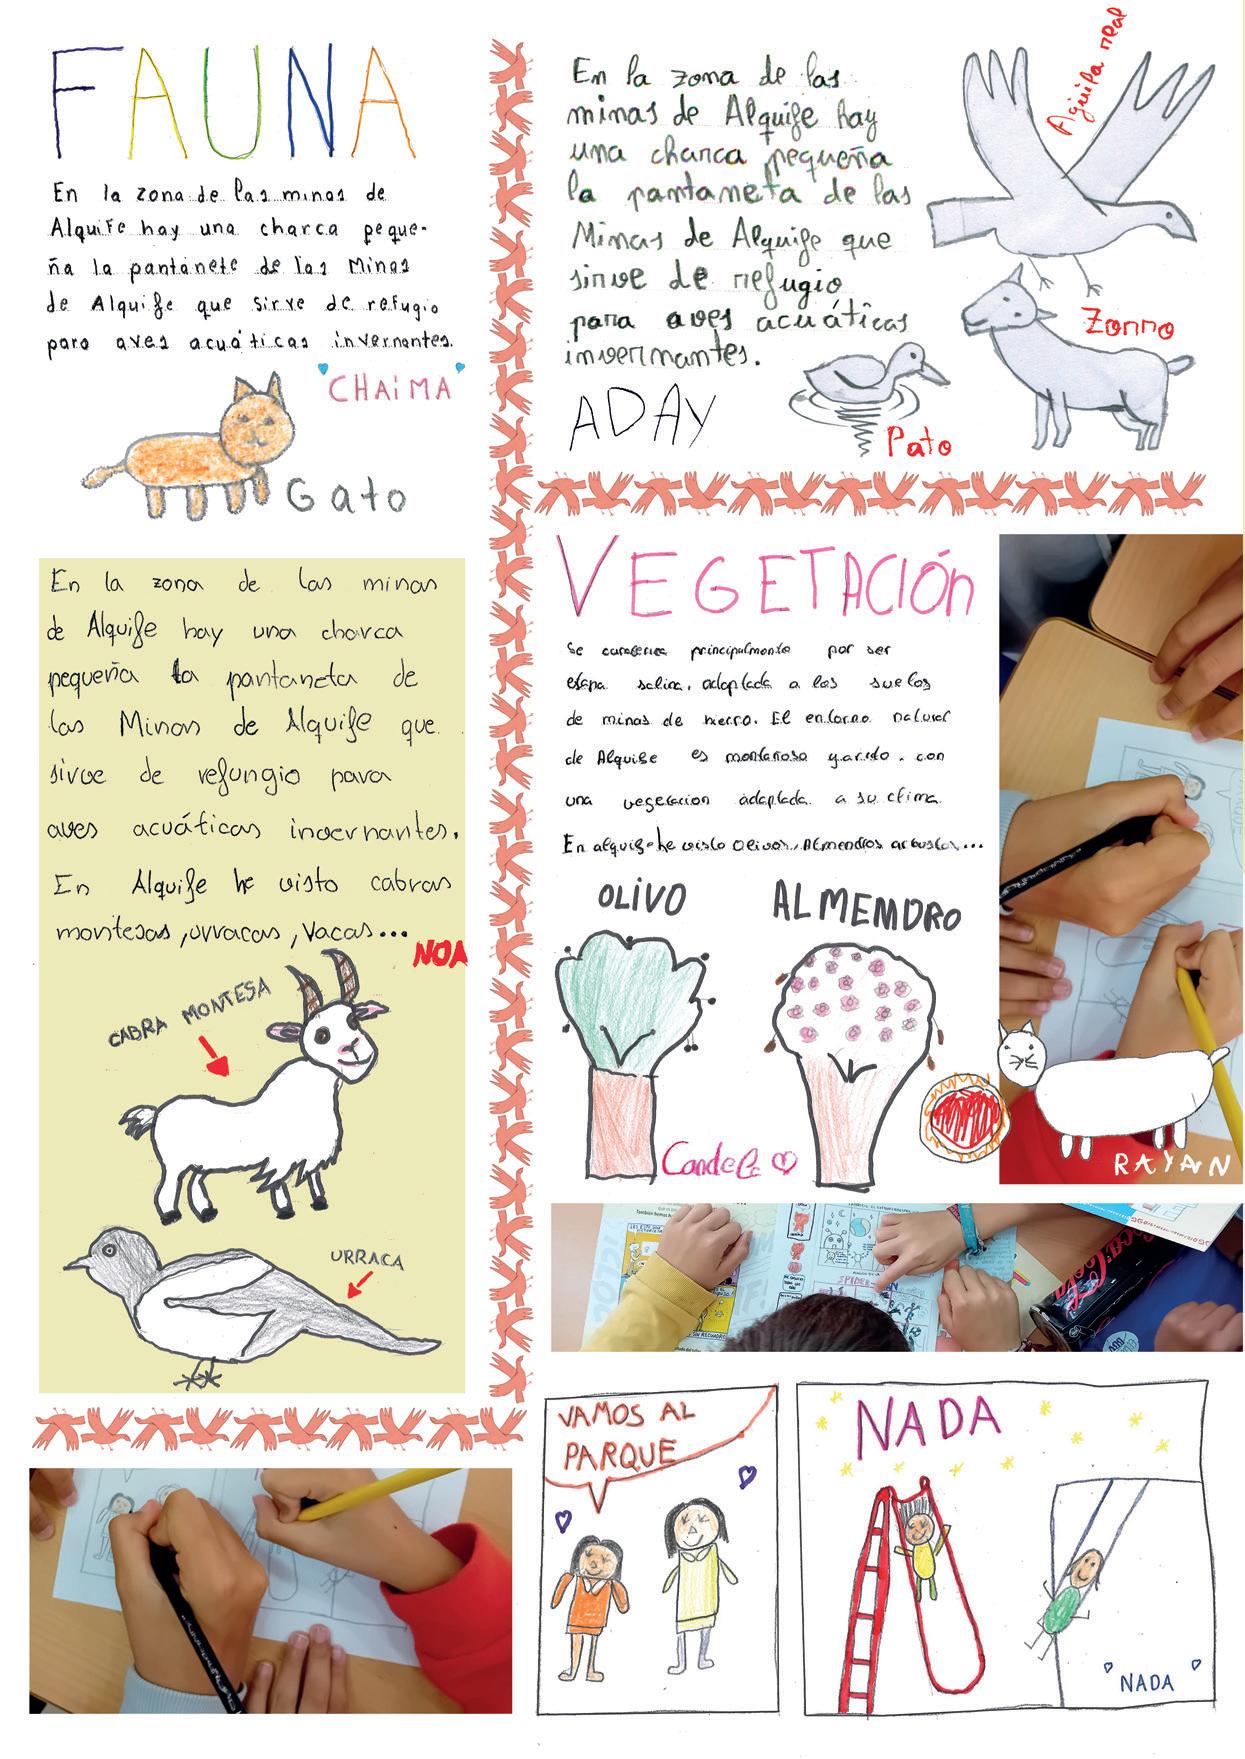 FAUNA
En la zona de las minas de
Alquife hay una charca peque-
ña la pantanete de las Minas
de Alquife que sirve de refugio
para aves acuáticas invernantes.
CHAiMA
Gato
En la zona de las
minas de Alquife hay
una charca pequeña
la pantaneta de las
Minas de Alquife que
sirve de refugio
para aves acuáticas
invernantes.
ADAY
Aguila real
Zorro
Pato
En la zona de las minas
de Alquife hay una charca
pequeña la pantaneta de
las Minas de Alquife que
sirve de refungio para
aves acuáticas invernantes.
En Alquife he visto cabras
montesas, urracas, vacas...
NOA
CABRA MONTESA
URRACA
VEGETACIÓn
Se principalmente por ser
salina, adaplada a los suelos
de minas de hierro. El entorno natural
de Alquife es montañoso y arido, con
una vegetacion adaplada a su clima.
En alquife he visto olivos, Almendros arbustos...
OLIVO
ALMEMDRO
Candela
RAYAN
SPIDER
Coca-Cola
VAMOS AL
PARQUE
NADA
NADA